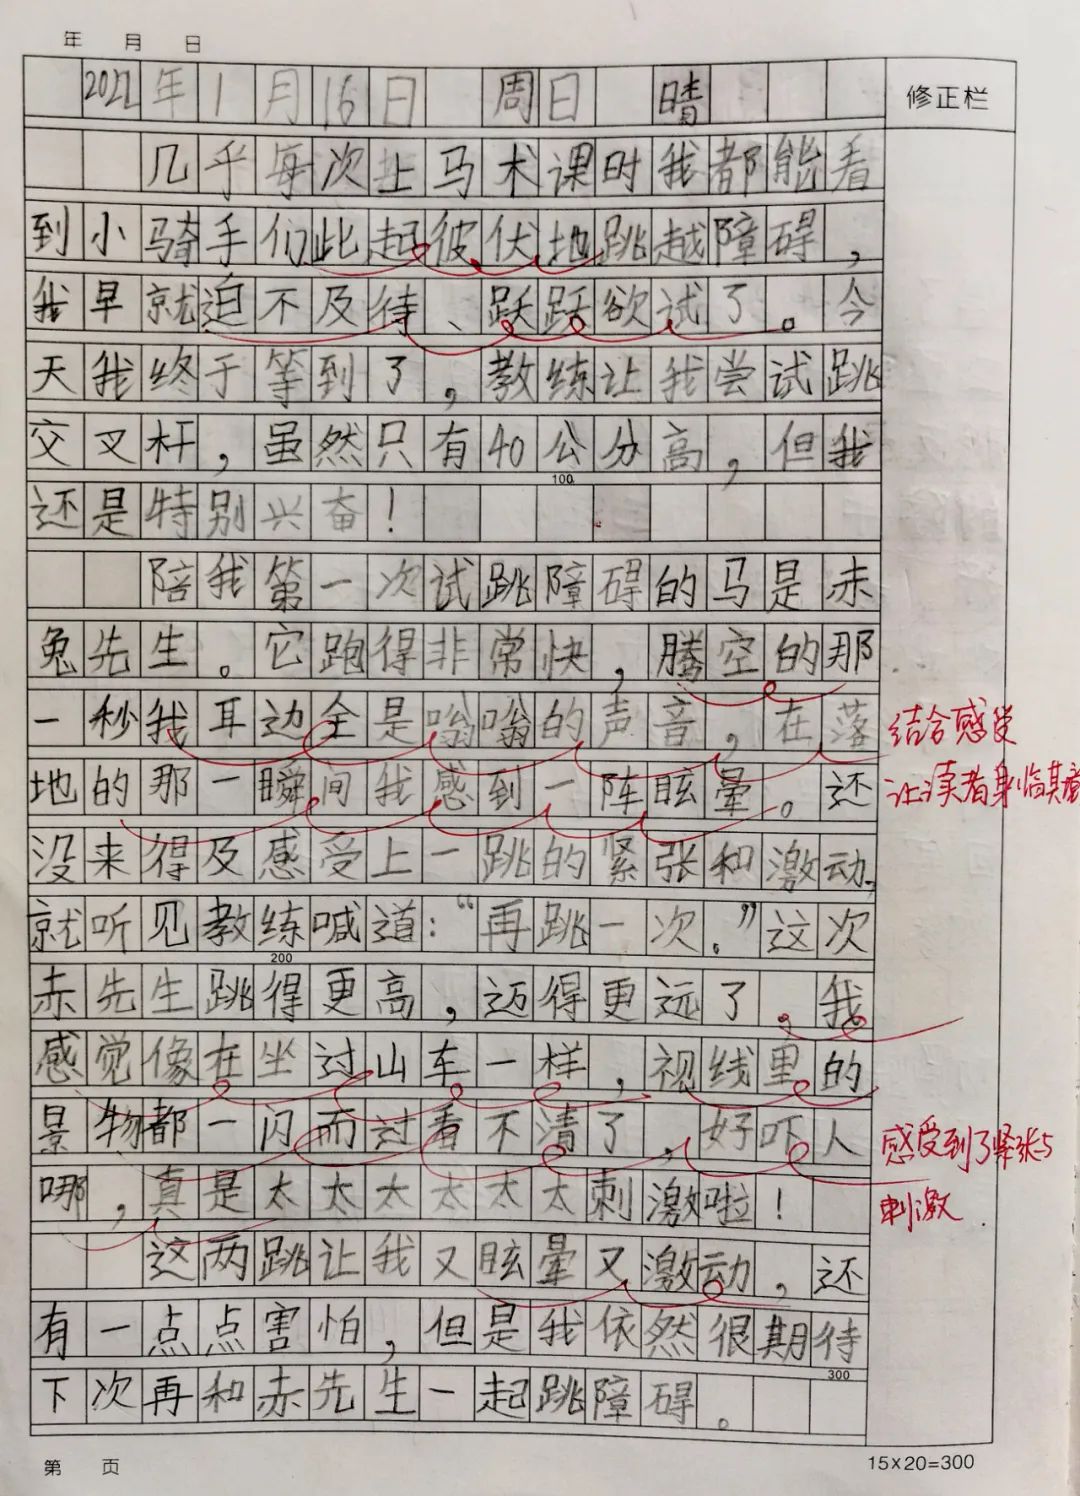 年 月 日
2022年1月16日 周日 晴
修正栏
几乎每次上马术课时我都能看
到小骑手们此起彼伏地跳越障碍，
我早就迫不及待、跃跃欲试了。今
天我终于等到了，教练让我尝试跳
交叉杆，虽然只有40公分高，但我
100
还是特别兴奋！
陪我第一次试跳障碍的马是赤
兔先生。它跑得非常快，腾空的那
一秒我耳边全是嗡嗡的声音，在落
结合感受
地的那一瞬间我感到一阵眩晕。还
让读者身临其境
没来得及感受上一跳的紧张和激动，
就听见教练喊道：“再跳一次．”这次
200
赤先生跳得更高，迈得更远了，我
感觉像在坐过山车一样，视线里的
景物都一闪而过看不清了，好吓人
感受到了紧张与
哪，真是太太太太太太刺激啦！
刺激
这两跳让我又眩晕又激动，还
有一点点害怕，但是我依然很期待
300
下次再和赤先生一起跳障碍。
第 页
15×20=300